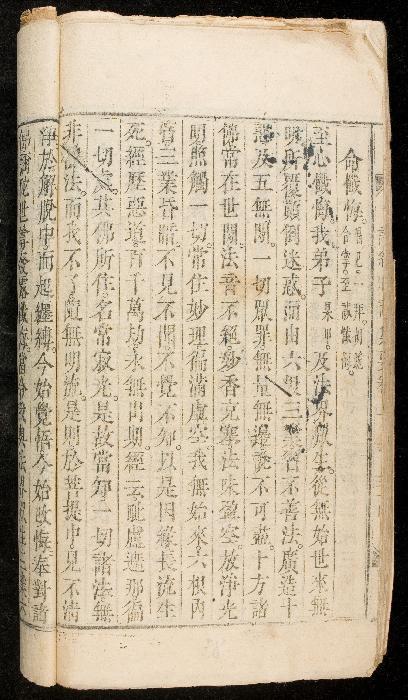 命懺悔
至心懺悔我弟子某甲及法界衆生從無始世來無
明所覆顛倒迷惑而由六根三業習不善法廣造十
惡及五無間一切衆罪無量無邊說不可盡十方諸
佛常在世間法音不絕妙香充塞法味盈空放淨光
明照觸一切常住妙理徧滿虛空我無始來六根內
盲三業昏暗不見不聞不覺不知以是因緣長流生
死經歷惡道百千萬劫永無出期經云毗盧遮那徧
一切處其佛所住名常寂光是故當知一切諸法無
非佛法而我不了隨無明流是則於菩提中見不清
淨於解脫中而起纏縛今始覺悟今始改悔奉對諸